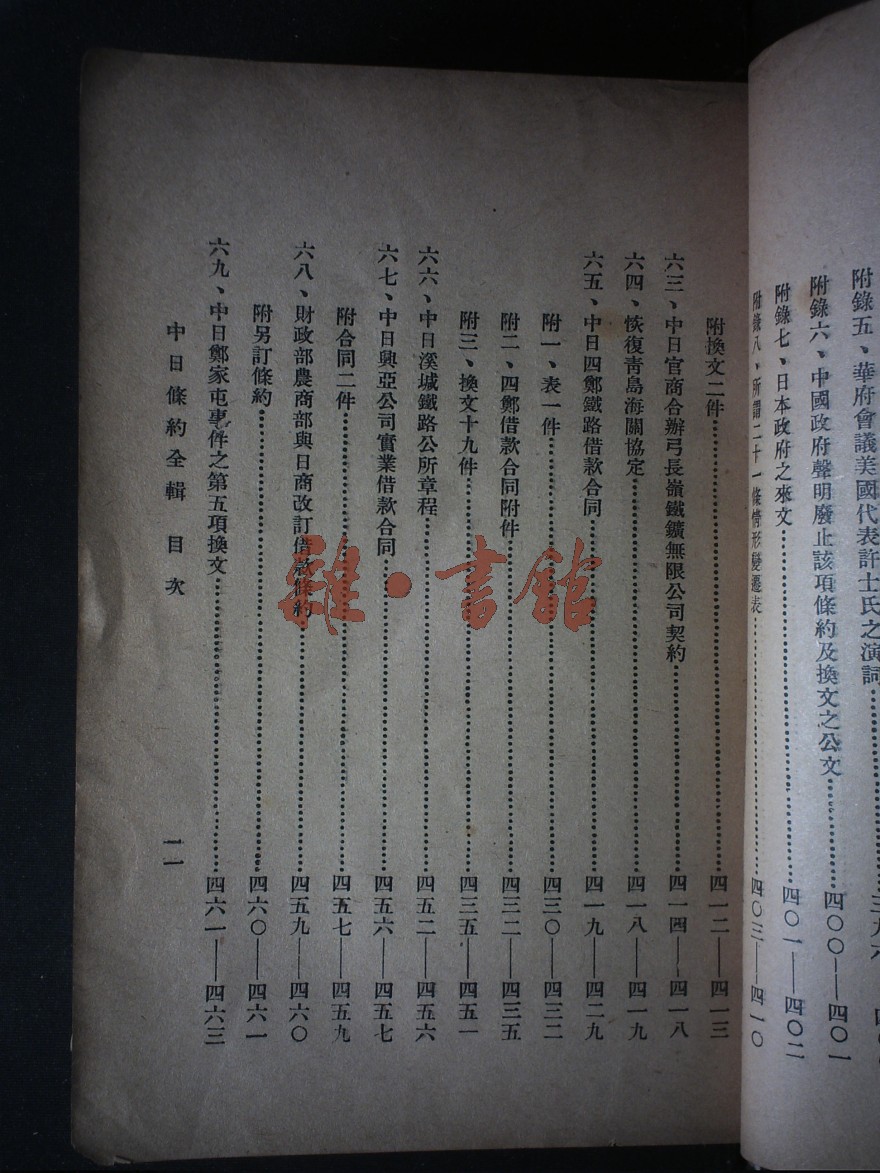 附錄五、華府會議美國代表許士氏之演詞……三九六
附錄六、中國政府聲明廢止該項條約及換文之公文……四〇〇—四〇一
附錄七、日本政府之來文……四〇一—四〇二
附錄八、所謂二十一條情形變遷表……四〇三—四一〇
附換文二件……四一二—四一三
六三、中日官商合辦弓長嶺鐵鑛無限公司契約……四一四—四一八
六四、恢復青島海關協定……四一八—四一九
六五、中日四鄭鐵路借款合同……四一九—四二九
附一、表一件……四三〇—四三二
附二、四鄭借款合同附件……四三二—四三五
附三、換文十九件……四三五—四五一
六六、中日溪城鐵路公所章程……四五二—四五六
六七、中日興亞公司實業借款合同……四五六—四五七
附合同二件……四五七—四五九
六八、財政部農商部與日商改訂借款條約……四五九—四六〇
附另訂條約……四六〇—四六一
六九、中日鄭家屯事件之第五項換文……四六一—四六三
中日條約全輯 目次 一一
雜·書館